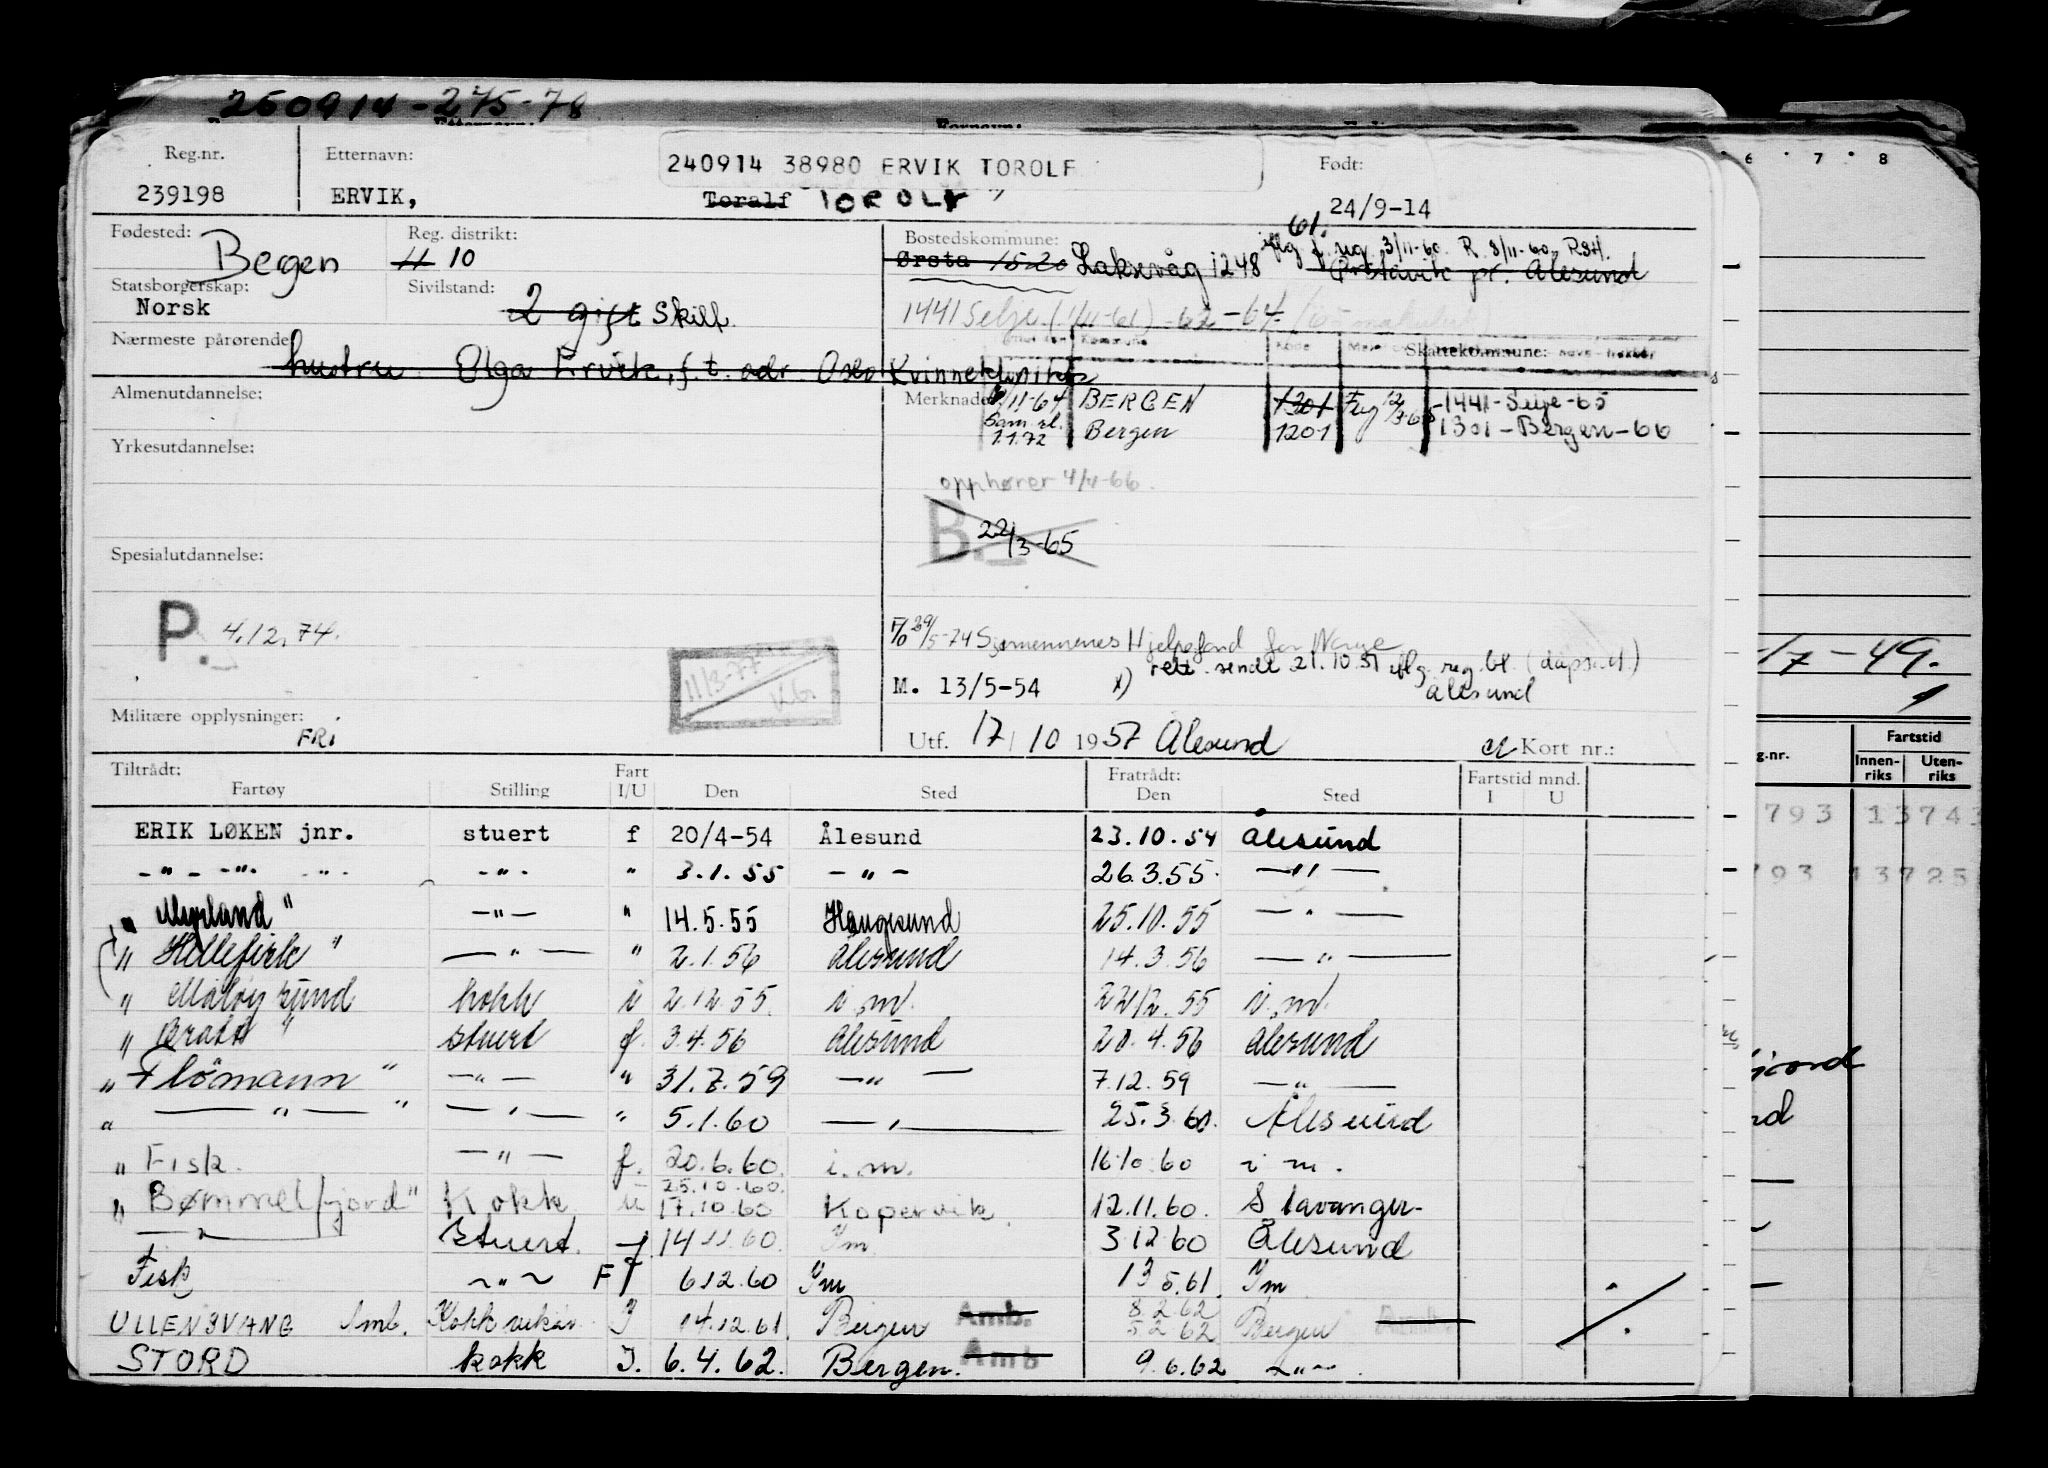 250914-275-78
Reg.nr. Etternavn: 240914 38980 ERVIK TOROLF Født:
239198 ERVIK, Toralf TOROLF 24/9-14
Fødested: Bergen Reg. distrikt: 11 10 Bostedskommune: Ørsta 1520 Laksevåg 1248 Ørstavik pr. Ålesund
Statsborgerskap: Norsk Sivilstand: 2 gift Skilt 1441 Selje (1/11-61) -62-64
Nærmeste pårørende hustru Olga Ervik, f.t. adr. Oslo Kvinneklinikk Skattekommune:
Almenutdannelse: Merknader 11-64 BERGEN 1301 -1441-Selje-65
11.72 Bergen 1201 1301-Bergen-66
Yrkesutdannelse:
opphører 4/4-66.
B. 22/3-65
Spesialutdannelse:
P. 4.12.74.
29/5-74 Sjømennenes Hjelpefond for Norge
11/3-77
rett. sendt 21.10.57 iflg. reg.bl.
M. 13/5-54 x) Ålesund
Militære opplysninger: FRI Utf. 17/10 1957 Ålesund Kort nr.:
-17-49.
Tiltrådt: Fratrådt: Fartstid mnd.
Fartøy Stilling Fart I/U Den Sted Den Sted I U
g.nr. Fartstid Innen-riks Uten-riks
ERIK LØKEN jnr. stuert f 20/4-54 Ålesund 23.10.54 Ålesund
793 13743
-"- -"- -"- -"- " 3.1.55 -"- 26.3.55 -"-
793 13725
" Myrland " -"- " 14.5.55 Haugesund 25.10.55 -"-
" Hillefisk " -"- " 2.1.56 Ålesund 14.3.56 -"-
" Måløysund kokk i 2.12.55. i.m. 22/12.55 i.m.
" Bratt " stuert f. 3.4.56 Ålesund 20.4.56 Ålesund
" Flömann " -"- " 31.7.59 -"- 7.12.59 -"-
" -"- " -"- " 5.1.60 -"- 25.3.60. Ålesund
" Fisk. -"- f. 20.6.60. i.m. 16.10.60 i m.
25.10.60.
" Bømmelfjord" Kokk ü 17.10.60 Kopervik. 12.11.60. Stavanger
-"- Stuert. f 14.11.60. Im. 3.12.60 Ålesund
Fisk -"- F 6.12.60 Im 13.5.61. Im
8.2.62
ULLENSVANG Amb. Kokk vikar I 14.12.61. Bergen Amb. 5.2.62 Bergen Amb.
STORD kokk I. 6.4.62. Bergen. Amb 9.6.62 -"-